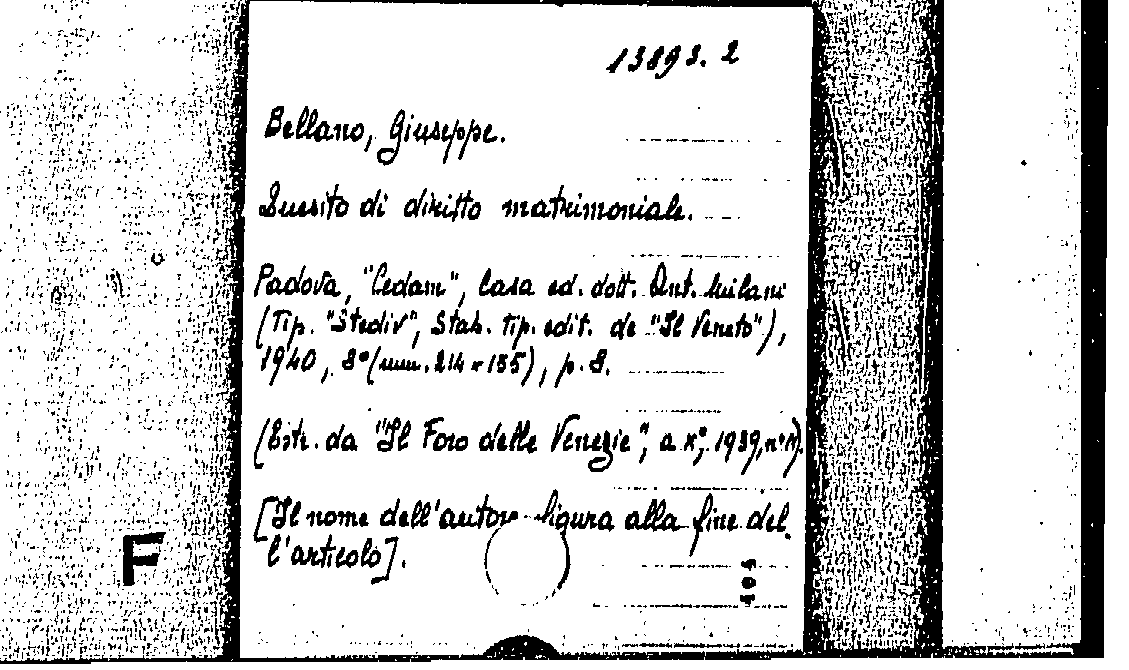 13893. 2
Bellano, Giuseppe.
Quesito di diritto matrimoniale.
Padova, "Cedam", Casa ed. dott. Ant. Milani
(Tip. "Stediv", Stab. Tip. edit. de "Il Veneto"),
1940, 8° (mm. 214 x 155), p. 8.
(Estr. da "Il Foro delle Venezie", a x°, 1939, n°
[Il nome dell'autore figura alla fine del
l'articolo].
F